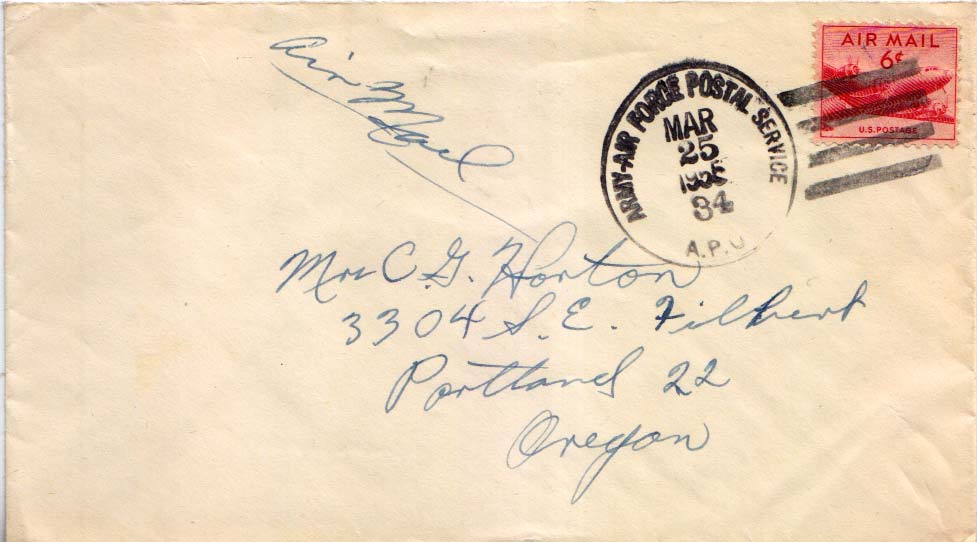 Air Mail
AIR MAIL
6¢
U.S. POSTAGE
ARMY-AIR FORCE POSTAL SERVICE
MAR
25
1955
34
A.P.O
Mrs C. G. Horton
3304 S. E. Filbert
Portland 22
Oregon